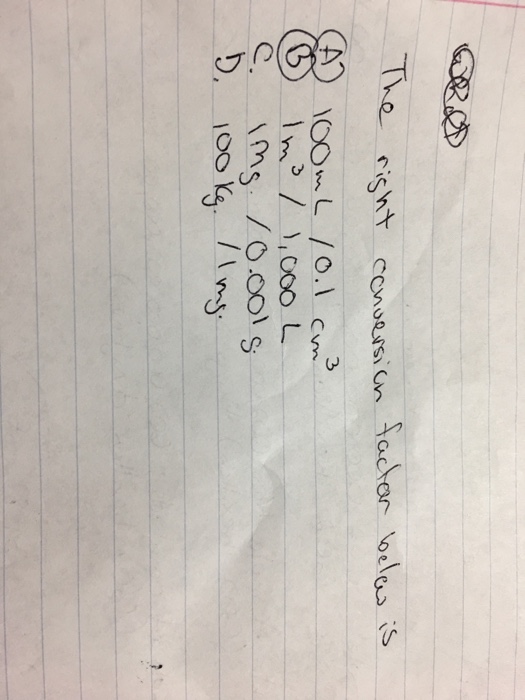 The right conversion factor below is
A) 100mL / 0.1 cm³
B) 1m³ / 1,000 L
C. 1mg. / 0.001 g.
D. 100 kg. / 1 mg.